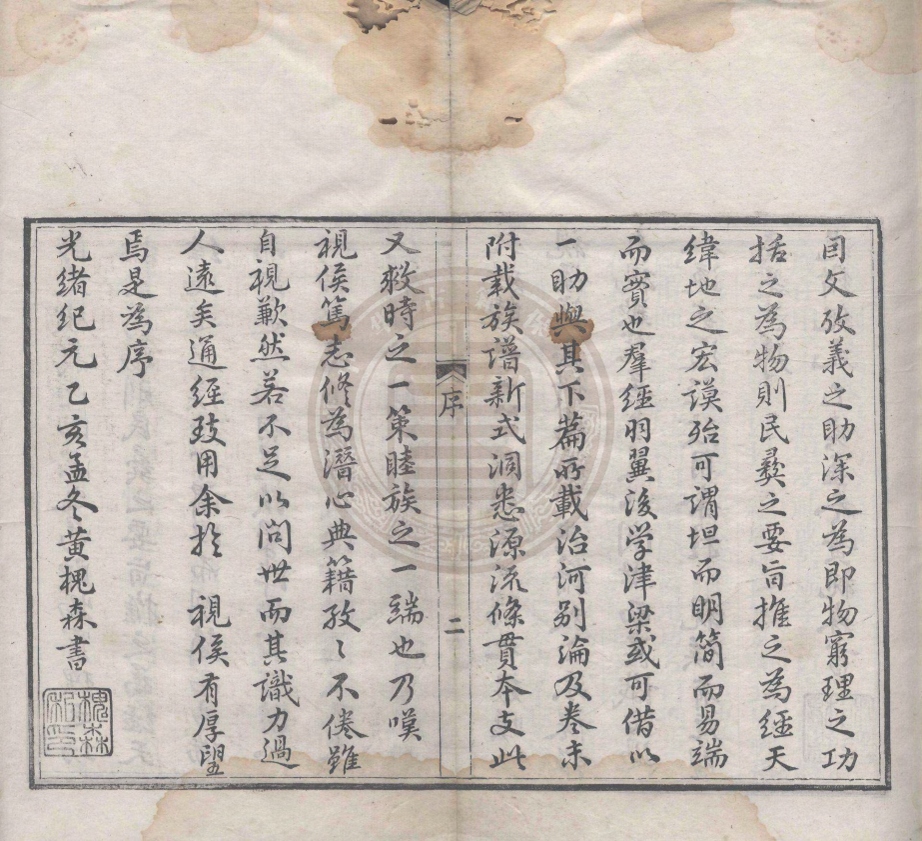 因文攷義之助深之為即物窮理之功
括之為物則民彜之要旨推之為經天
緯地之宏謨殆可謂坦而明簡而易端
而實也羣經羽翼後学津梁或可借以
一助與其下篇所載治河别論及卷末
附載族譜新式洞悉源流條貫本支此
序
二
又救時之一策睦族之一端也乃嘆
視侯篤志修為潛心典籍孜〻不倦雖
自視歉然若不足以問世而其識力過
人遠矣通經致用余於 視侯有厚望
焉是為序
光緒紀元乙亥孟冬黃槐森書
槐森
私印